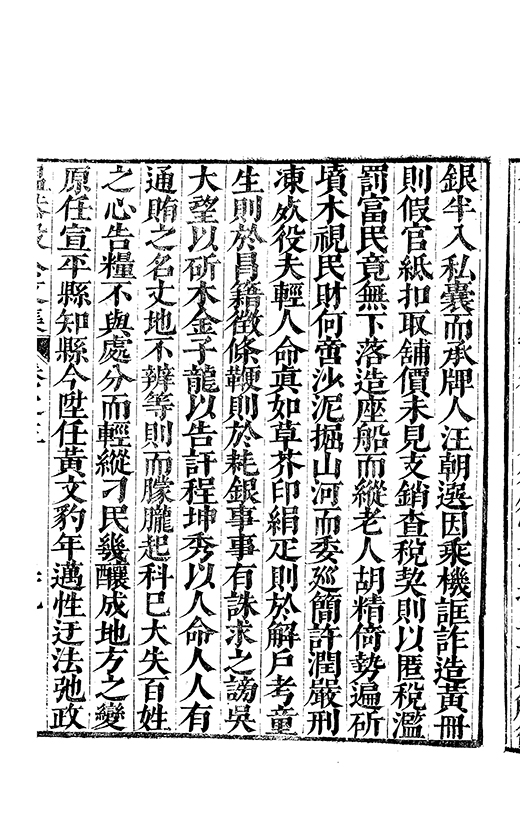 銀半入私囊而承牌人汪朝選因乘機誆詐造黃冊
則假官紙扣取鋪價未見支銷查稅契則以匿稅濫
罰富民竟無下落造座船而縱老人胡精倚勢遍斫
墳木視民財何啻沙泥掘山河而委廵簡許潤嚴刑
凍效役夫輕人命眞如草芥印絹疋則於解戶考童
生則於昌籍徵條鞭則於耗銀事事有誅求之謗吳
大望以斫木金子龍以告訐程坤秀以人命人人有
通賄之名丈地不辨等則而朦朧起科巳大失百姓
之心告糧不與處分而輕縱刁民幾釀成地方之變
原任宣平縣知縣今陞任黃文豹年邁性迂法弛政